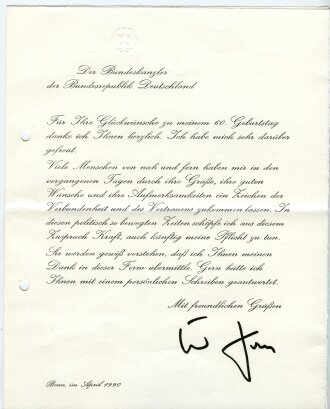 Der Bundeskanzler
der Bundesrepublik Deutschland
Für Ihre Glückwünsche zu meinem 60. Geburtstag
danke ich Ihnen herzlich. Ich habe mich sehr darüber
gefreut.
Viele Menschen von nah und fern haben mir in den
vergangenen Tagen durch ihre Grüße, ihre guten
Wünsche und ihre Aufmerksamkeiten ein Zeichen der
Verbundenheit und des Vertrauens zukommen lassen. In
diesen politisch so bewegten Zeiten schöpfe ich aus diesem
Zuspruch Kraft, auch künftig meine Pflicht zu tun.
Sie werden gewiß verstehen, daß ich Ihnen meinen
Dank in dieser Form übermittle. Gern hätte ich
Ihnen mit einem persönlichen Schreiben geantwortet.
Mit freundlichen Grüßen
Bonn, im April 1990